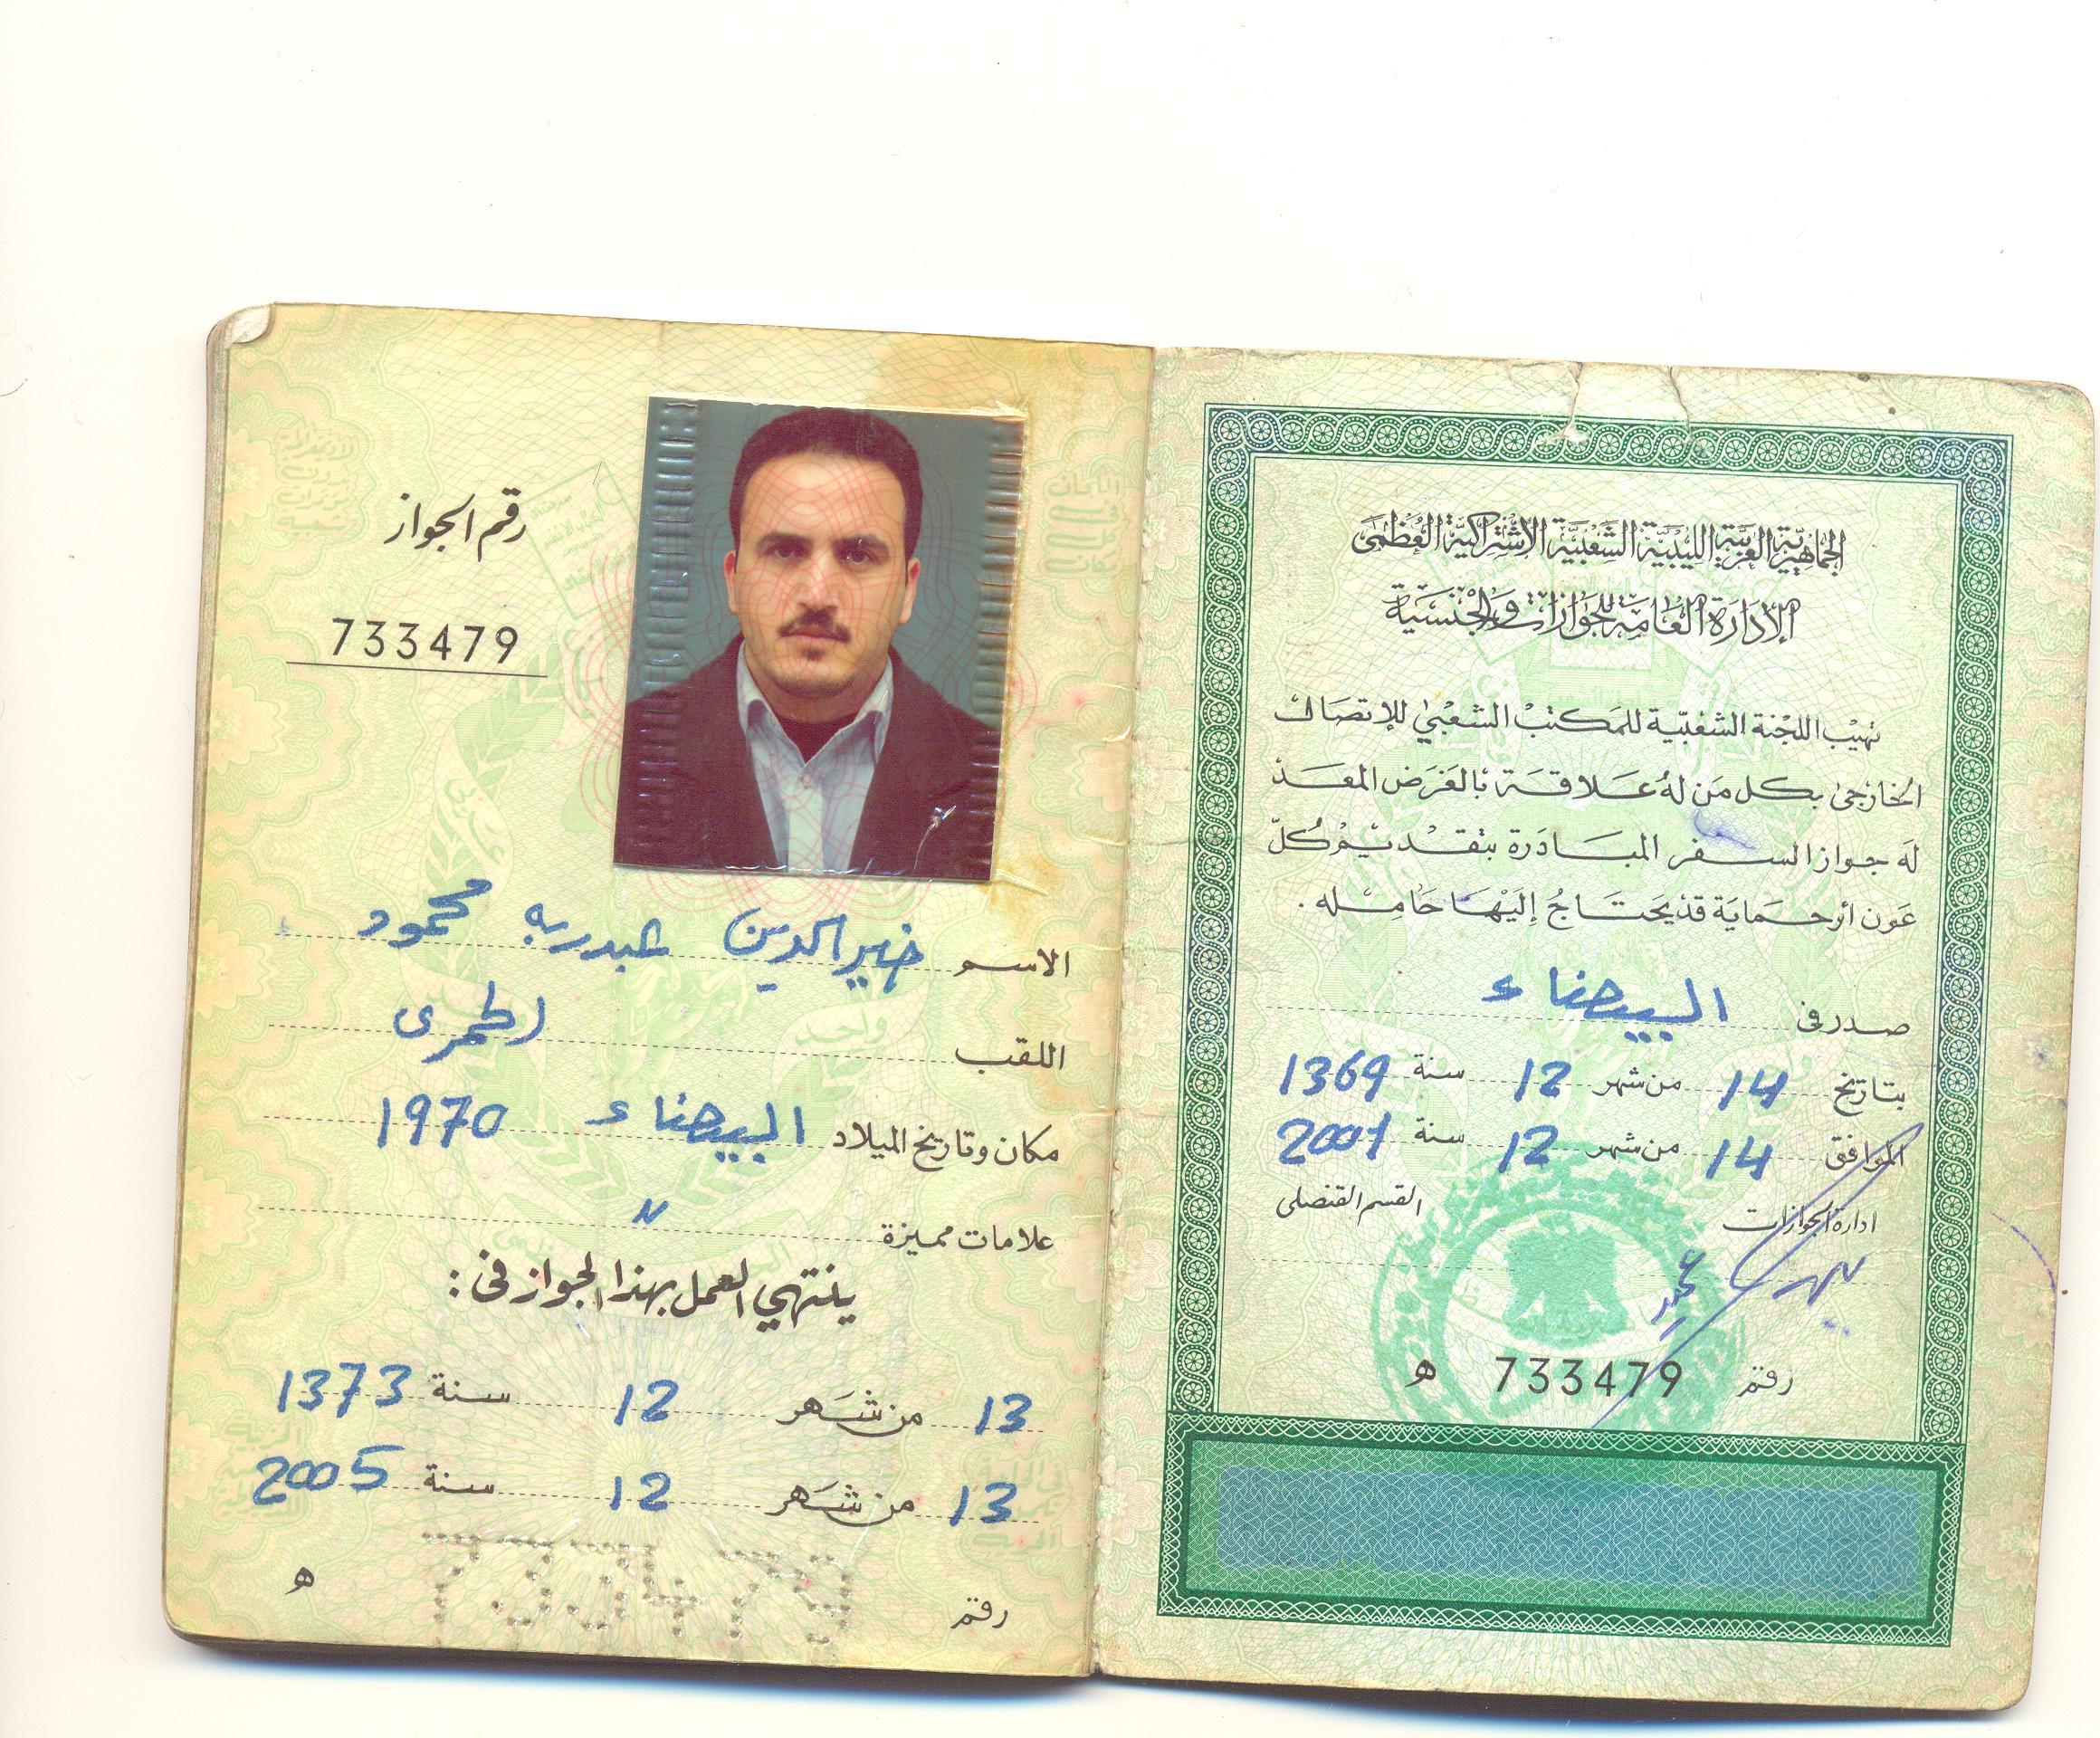 الجماهيرية العربية الليبية الشعبية الإشتراكية العظمى
الإدارة العامة للجوازات والجنسية
تهيب اللجنة الشعبية للمكتب الشعبي للإتصال
الخارجي بكل من له علاقة بالغرض المعد
له جواز السفر المبادرة بتقديم كل
عون أو حماية قد يحتاج إليها حامله .
صدر في البيضاء
بتاريخ 14 من شهر 12 سنة 1369
الموافق 14 من شهر 12 سنة 2001
ادارة الجوازات القسم القنصلى
رقم 733479 ه
رقم الجواز
733479
الاسم خير الدين عبدربه محمود
اللقب
مكان وتاريخ الميلاد البيضاء 1970
علامات مميزة
ينتهي العمل بهذا الجواز فى :
13 من شهر 12 سنة 1373
13 من شهر 12 سنة 2005
رقم 733479 ه